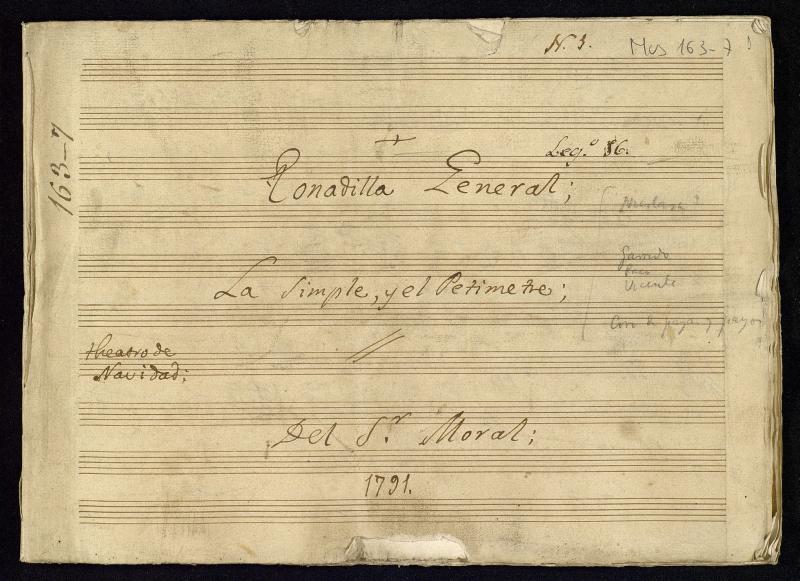 N. 3.
Mus 163-7
163-7
Leg.º 16.
Tonadilla General;
La Simple, y el Petimetre;
Garrido
Vicente
Coro de payas y payos
theatro de
Navidad;
Del S.r Moral;
1791.